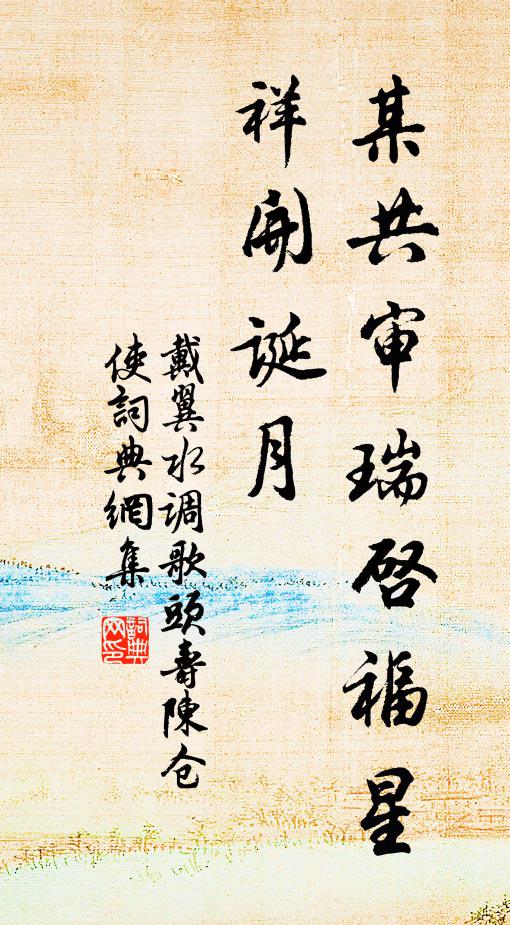 某共审瑞启福星
祥開誕月
戴翼水调歌頭壽陳仓
使詞典網集
詞典网印